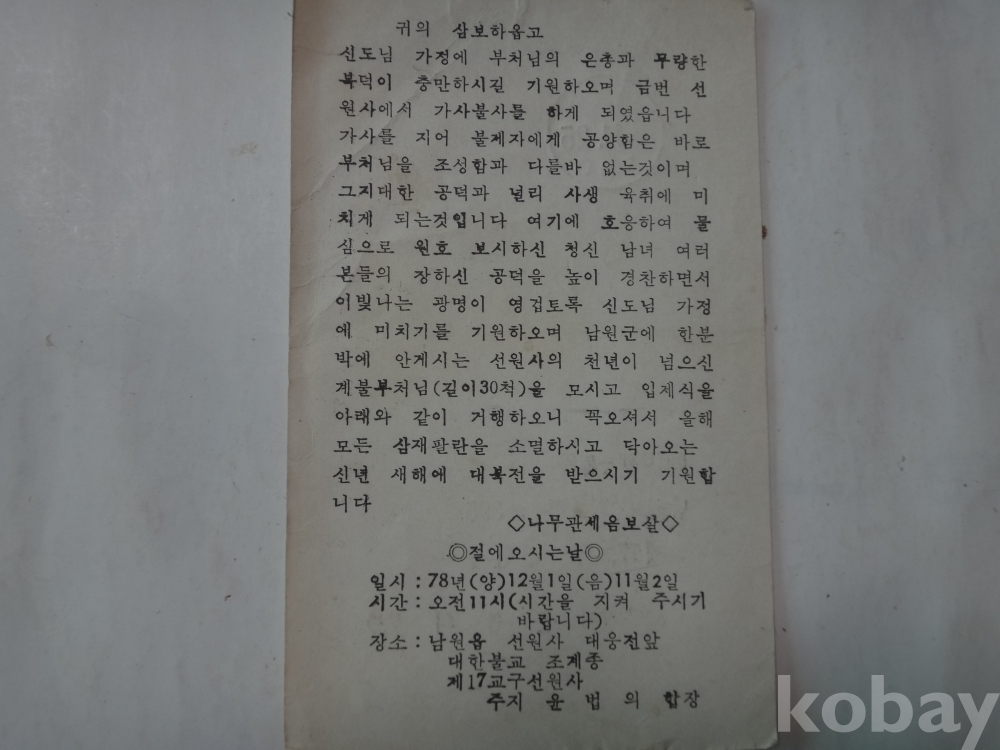 귀의 삼보하옵고
신도님 가정에 부처님의 은총과 무량한
복덕이 충만하시길 기원하오며 금번 선
원사에서 가사불사를 하게 되였읍니다
가사를 지어 불제자에게 공양함은 바로
부처님을 조성함과 다를바 없는것이며
그지대한 공덕과 널리 사생 육취에 미
치게 되는것입니다 여기에 호응하여 물
심으로 원호 보시하신 청신 남녀 여러
본들의 장하신 공덕을 높이 경찬하면서
이빛나는 광명이 영겁토록 신도님 가정
에 미치기를 기원하오며 남원군에 한분
박에 안게시는 선원사의 천년이 넘으신
계불부처님(길이30척)을 모시고 입제식을
아래와 같이 거행하오니 꼭오셔서 올해
모든 삼재팔란을 소멸하시고 닥아오는
신년 새해에 대복전을 받으시기 기원합
니다
◇나무관세음보살◇
◎절에오시는날◎
일시 : 78년(양)12월1일(음)11월2일
시간 : 오전11시(시간을 지켜 주시기
바랍니다)
장소 : 남원읍 선원사 대웅전앞
대한불교 조계종
제17교구선원사
주지 윤 법 의 합장
kobay